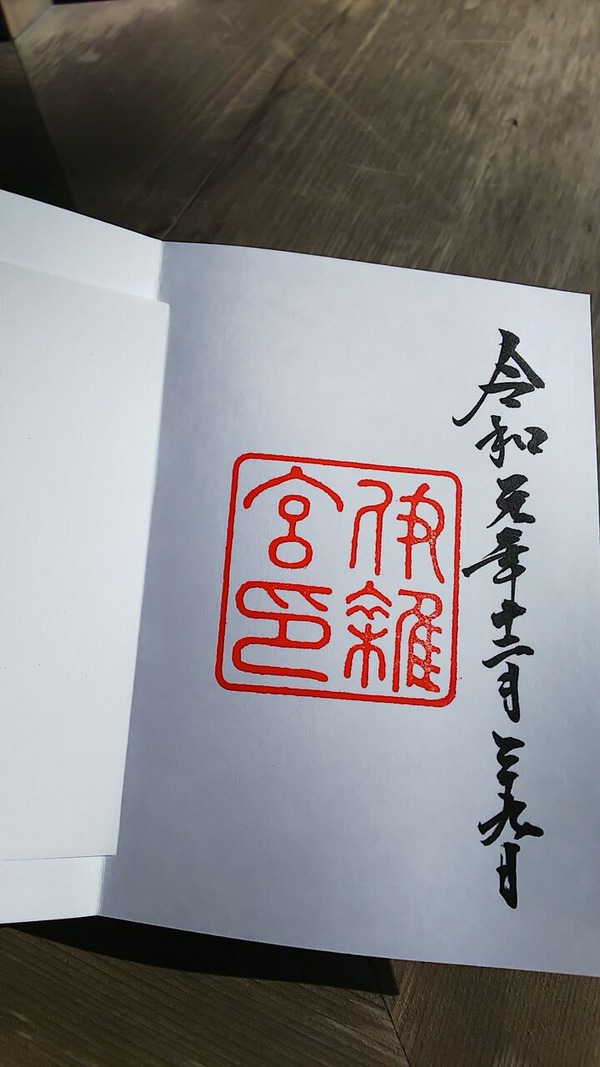 令和元年十二月二十九日
伊雜
宮印